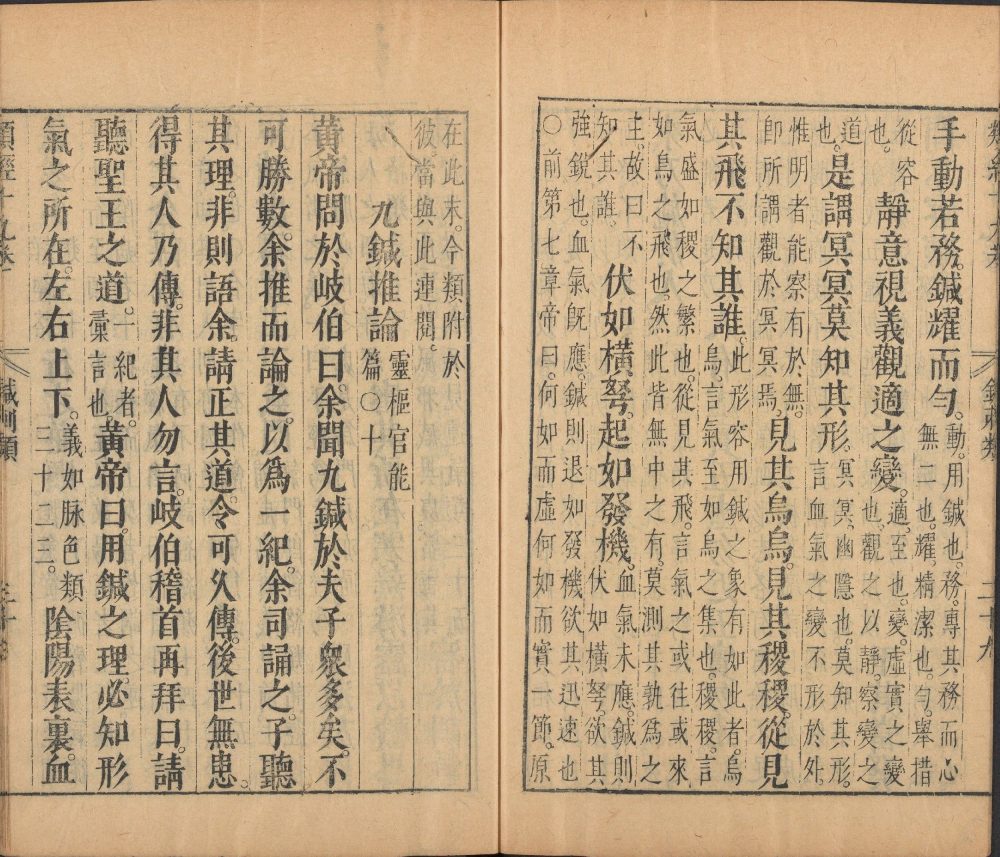 手動若務鍼耀而勻。動。用鍼也。務。專其務而心無二也。耀。精潔也。勻。舉措
從容也。靜意視義觀適之變。適。至也。變。虛實之變也。觀之以靜。察變之
道也。是謂冥冥莫知其形。冥冥。幽隱也。莫知其形。言血氣之變不形於外。
惟明者能察有於無。即所謂觀於冥冥焉。見其烏烏。見其稷稷。從見
其飛不知其誰。此形容用鍼之象有如此者。烏烏。言氣至如烏之集也。稷稷。言
氣盛如稷之繁也。從見其飛。言氣之或往或來如鳥之飛也。然此皆無中之有。莫測其孰為之
主。故曰不知其誰。伏如橫弩。起如發機。血氣未應。鍼則伏如橫弩欲其
強銳也。血氣既應。鍼則退如發機欲其迅速也○前第七章帝曰。何如而虛何如而實一節。原
在此末。今類附於彼。當與此連閱。
九鍼推論靈樞官能篇○十
黃帝問於岐伯曰。余聞九鍼於夫子衆多矣。不
可勝數。余推而論之。以爲一紀。余司誦之。子聽
其理。非則語余。請正其道。令可久傳。後世無患。
得其人乃傳。非其人勿言。岐伯稽首再拜曰。請
聽聖王之道。一紀者。彙言也。黃帝曰。用鍼之理。必知形
氣之所在。左右上下。義如脉色類三十三。陰陽表裏。血
類經十九卷
鍼刺類